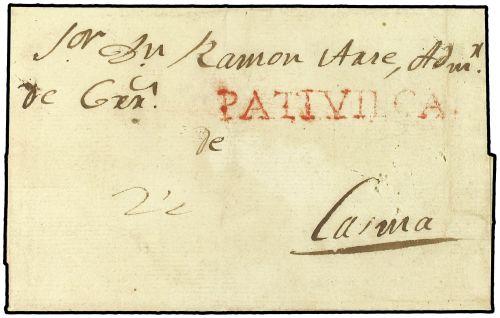 Sor. Dn Ramon Arse, Admr.
de Corrs. PATIVILCA.
de
Casma